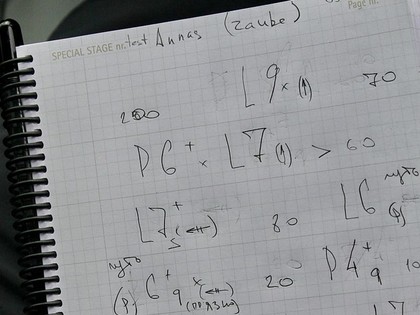 SPECIAL STAGE nr. test Annas (zaube)
Page nr.
L9 x (↑) 70
200
P6+ x L7 (↑) > 60
L7+ 80
L6
6+ 9 x 20 P4+ 9 10
(P)